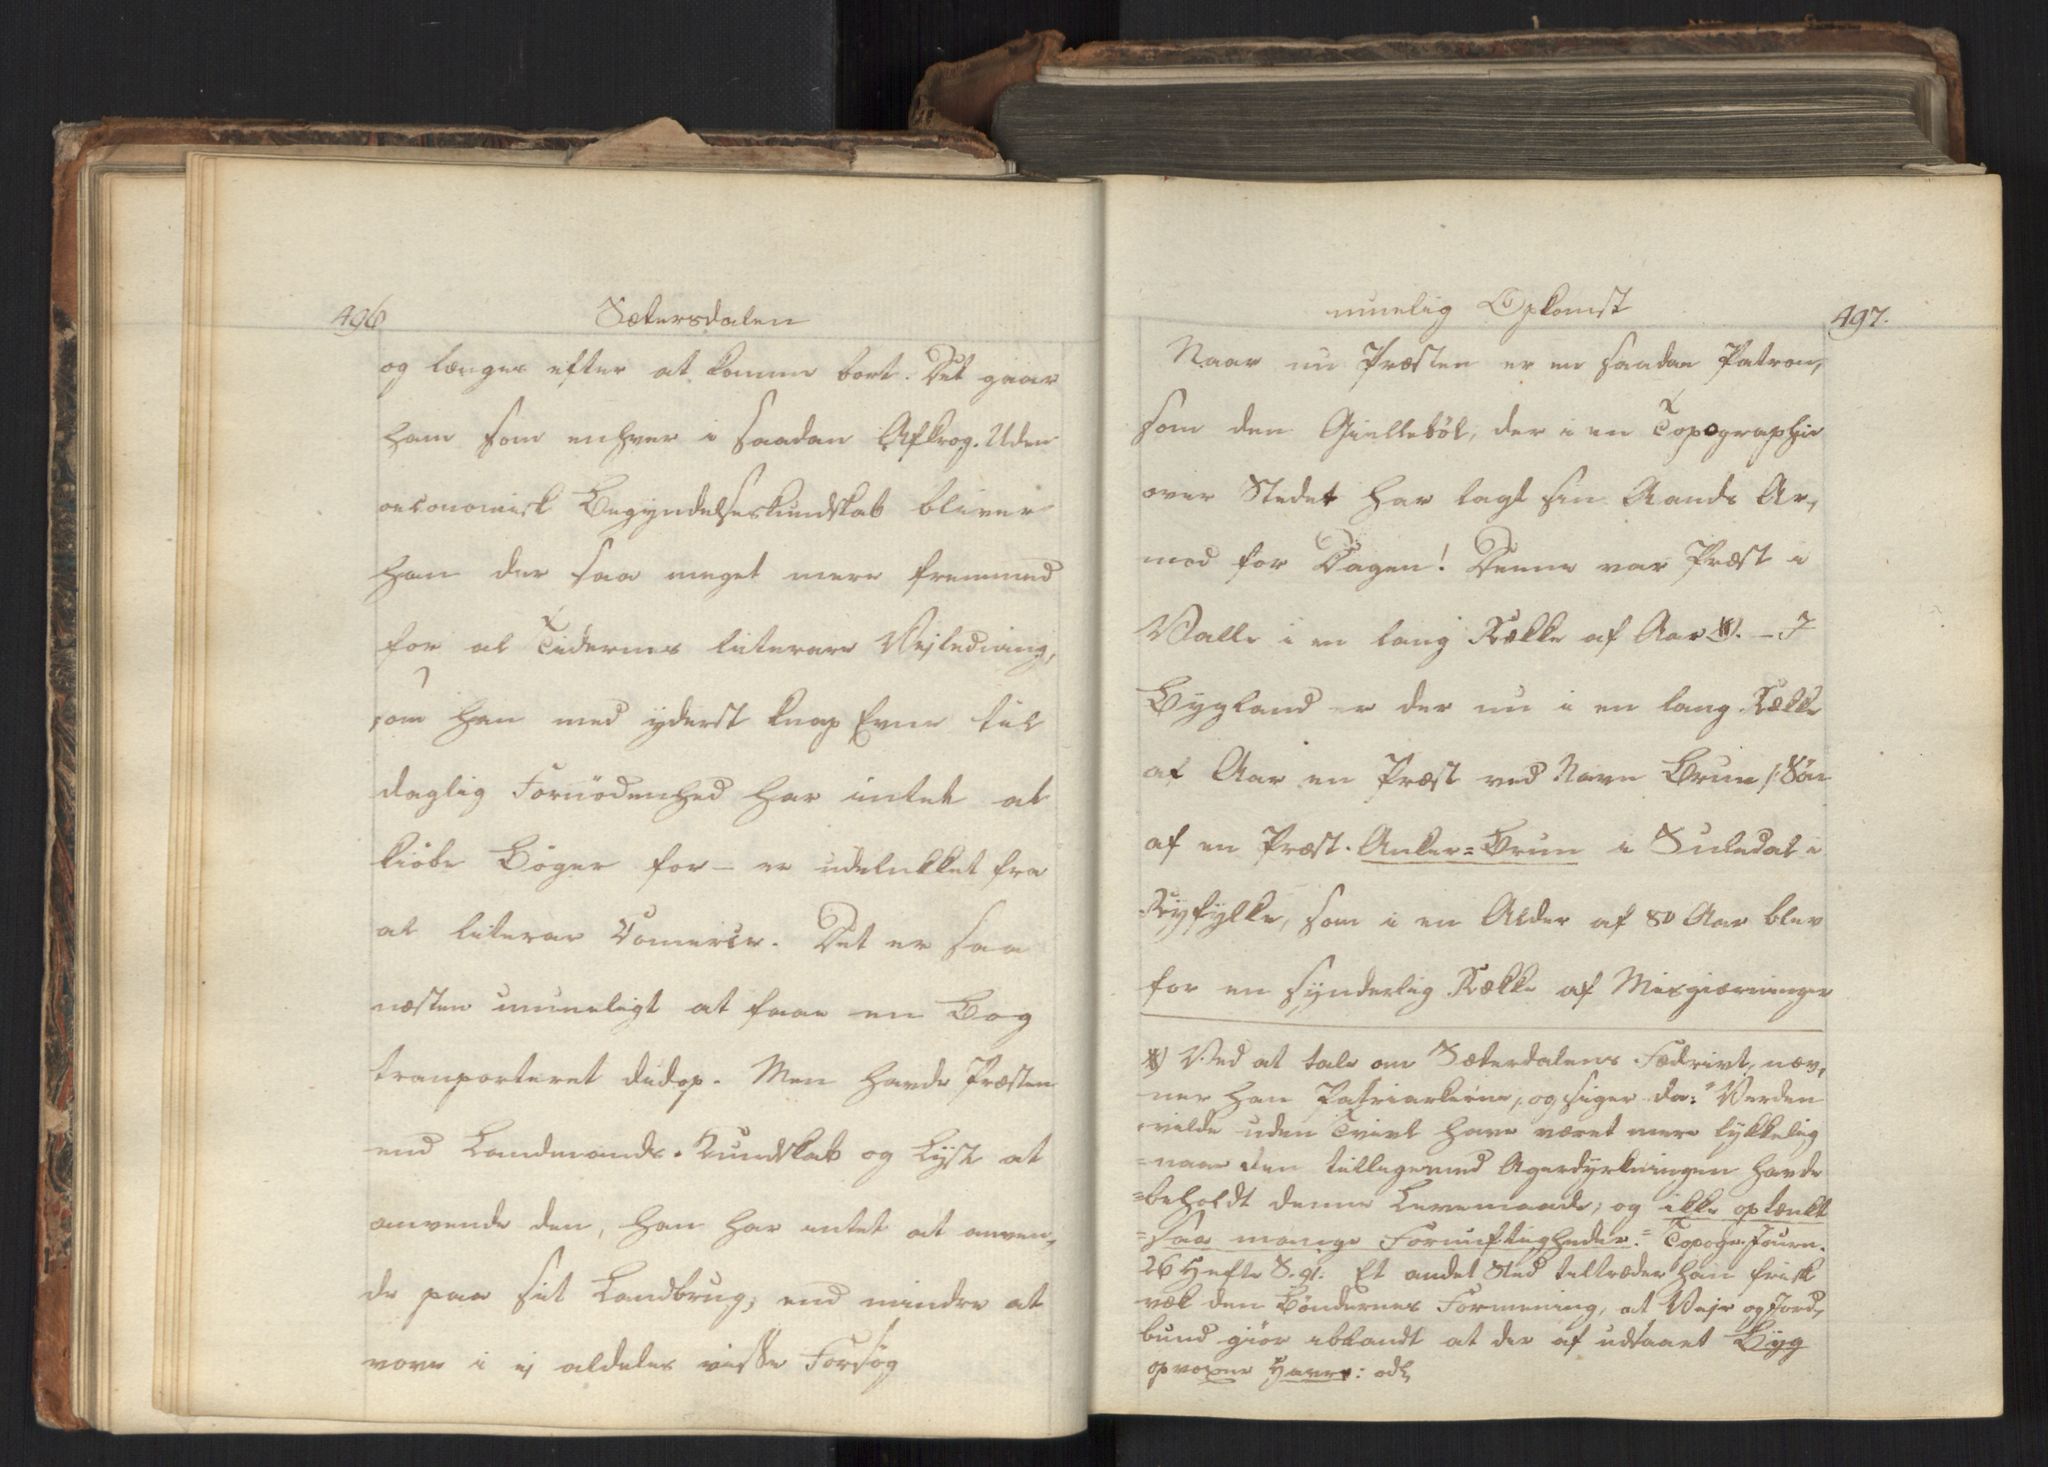 496
Sætersdalen
og længes efter at komme bort. Det gaar
ham som enhver i saadan Afkrog. Uden
oeconomisk Begyndelseskundskab bliver
han der saa meget mere fremmed
for al Tidernes literare Vejledning,
som han med yderst knap Evne til
daglig Fornödenhed har intet at
kiöbe Böger for – er udelukket fra
al literar Comerce. Det er saa
næsten umueligt at faae en Bog
tranporteret didop. Men havde Præsten
end Landmands-Kundskab og Lyst at
anvende den, han har intet at anven,
de paa sit Landbrug, end mindre at
vove i ej aldeles visse Forsög
muelig Opkomst
497.
Naar nu Præsten er en saadan Patron,
som den Gielleböl, der i en Topographie
over Stedet har lagt sin Aands Ar,
mod for Dagen! Denne var Præst i
Valle i en lang Række af Aar *). – I
Bygland er der nu i en lang Række
af Aar en Præst ved Navn Brun /: Sön
af en Præst. Anker=Brun i Suledal i
Ryfylke, som i en Alder af 80 Aar blev
for en synderlig Række af Misgierninger
*) Ved at tale om Sæterdalens Fædrivt, næv,
ner han Patriarkerne, og siger da: "Verden
"vilde uden Tvivl have været mere lykkelig
=naar den tilligemed Agerdyrkningen havde
=beholdt denne Levemaade, og ikke optænkt
=saa mange Fornuftigheder.= Topogr. Journ.
26 Hefte S. 91. Et andet Sted tiltræder han frisk
væk den Böndernes Formening, at Vejr og Jord,
bund giör iblandt at der af udsaaet Byg
opvoxer Havre: odl,